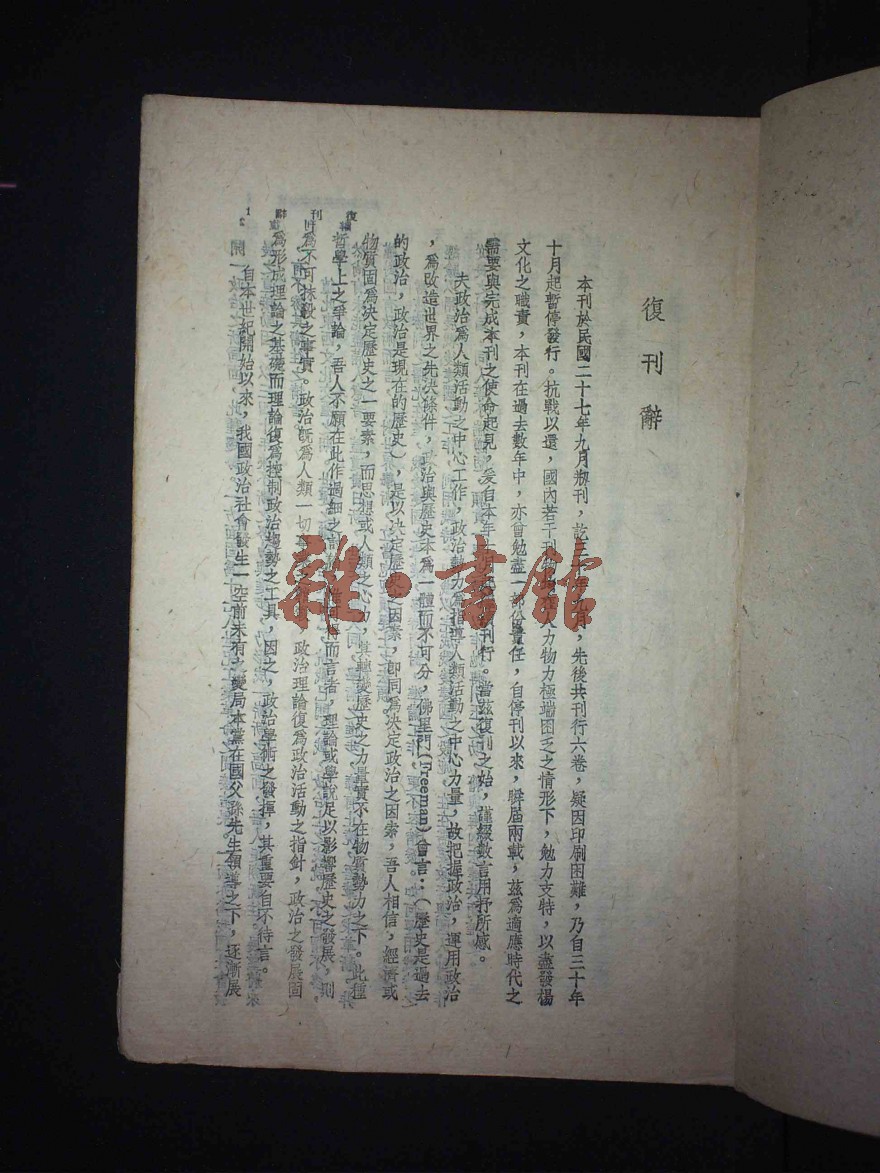 復刊辭
本刊於民國二十七年九月刱刊，訖三十年九月，先後共刊行六卷，疑因印刷困難，乃自三十年
十月起暫停發行。抗戰以還，國內若干刊物均在人力物力極端困乏之情形下，勉力支特，以盡發楊
文化之職責，本刊在過去數年中，亦曾勉盡一部份責任，自停刊以來，瞬屆兩載，茲為適應時代之
需要與完成本刊之使命起見，爰自本年 刊行。當茲復刊之始，謹綴數言用抒所感。
夫政治為人類活動之中心工作，政治動力為指導人類活動之中心力量，故把握政治，運用政治
，為改造世界之先決條件，政治與歷史本為一體而不可分，佛里門(Freeman)曾言：（歷史是過去
的政治，政治是現在的歷史），是以決定歷史之因素，即同為決定政治之因素，吾人相信，經濟或
物質固為決定歷史之一要素，而思想或人類之心力，其轉變歷史之力量實不在物質勢力之下。此種
哲學上之爭論，吾人不願在此作過細之討 而言者，理論或學說足以影響歷史之發展，則
為不可抹殺之事實。政治既為人類一切 ，政治理論復為政治活動之指針，政治之發展固
為形成理論之基礎而理論復為控制政治趨勢之工具，因之，政治學術之發揮，其重要自不待言。
自本世紀開始以來，我國政治社會發生一空前未有之變局本黨在國父孫先生領導之下，逐漸展
開
復刊辭
1
2
雜·書館